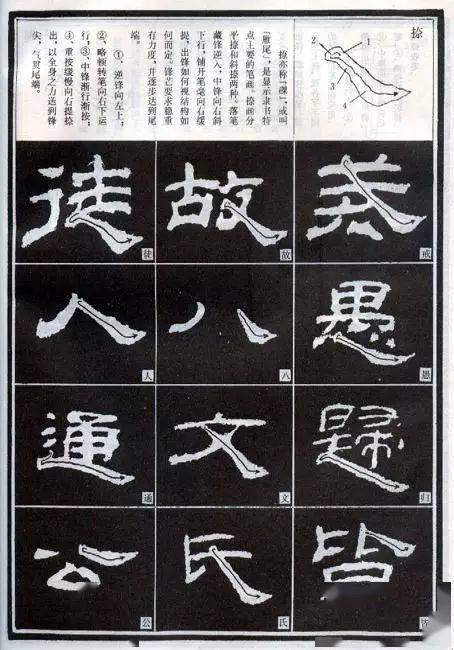 捺
2
1
3
4
捺亦称「磔」，或叫
「雁尾」，是显示隶书特
点主要的笔画。捺画分
平捺和斜捺两种。落笔
藏锋逆入，中锋向右斜
下行，铺开笔毫向右缓
提，出锋如何视结构如
何而定。锋芒要求稳重
有力度，并逐步达到尾
端。
①、逆锋向左上；
②、略顿转笔向右下运
行；③、中锋渐行渐按；
④、重按缓慢向右提捺
出，以全身之力送到锋
尖，气贯尾端。
戒
戒
愚
愚
歸
归
皆
皆
故
故
八
八
文
文
氏
氏
徒
徒
人
人
通
通
公
公